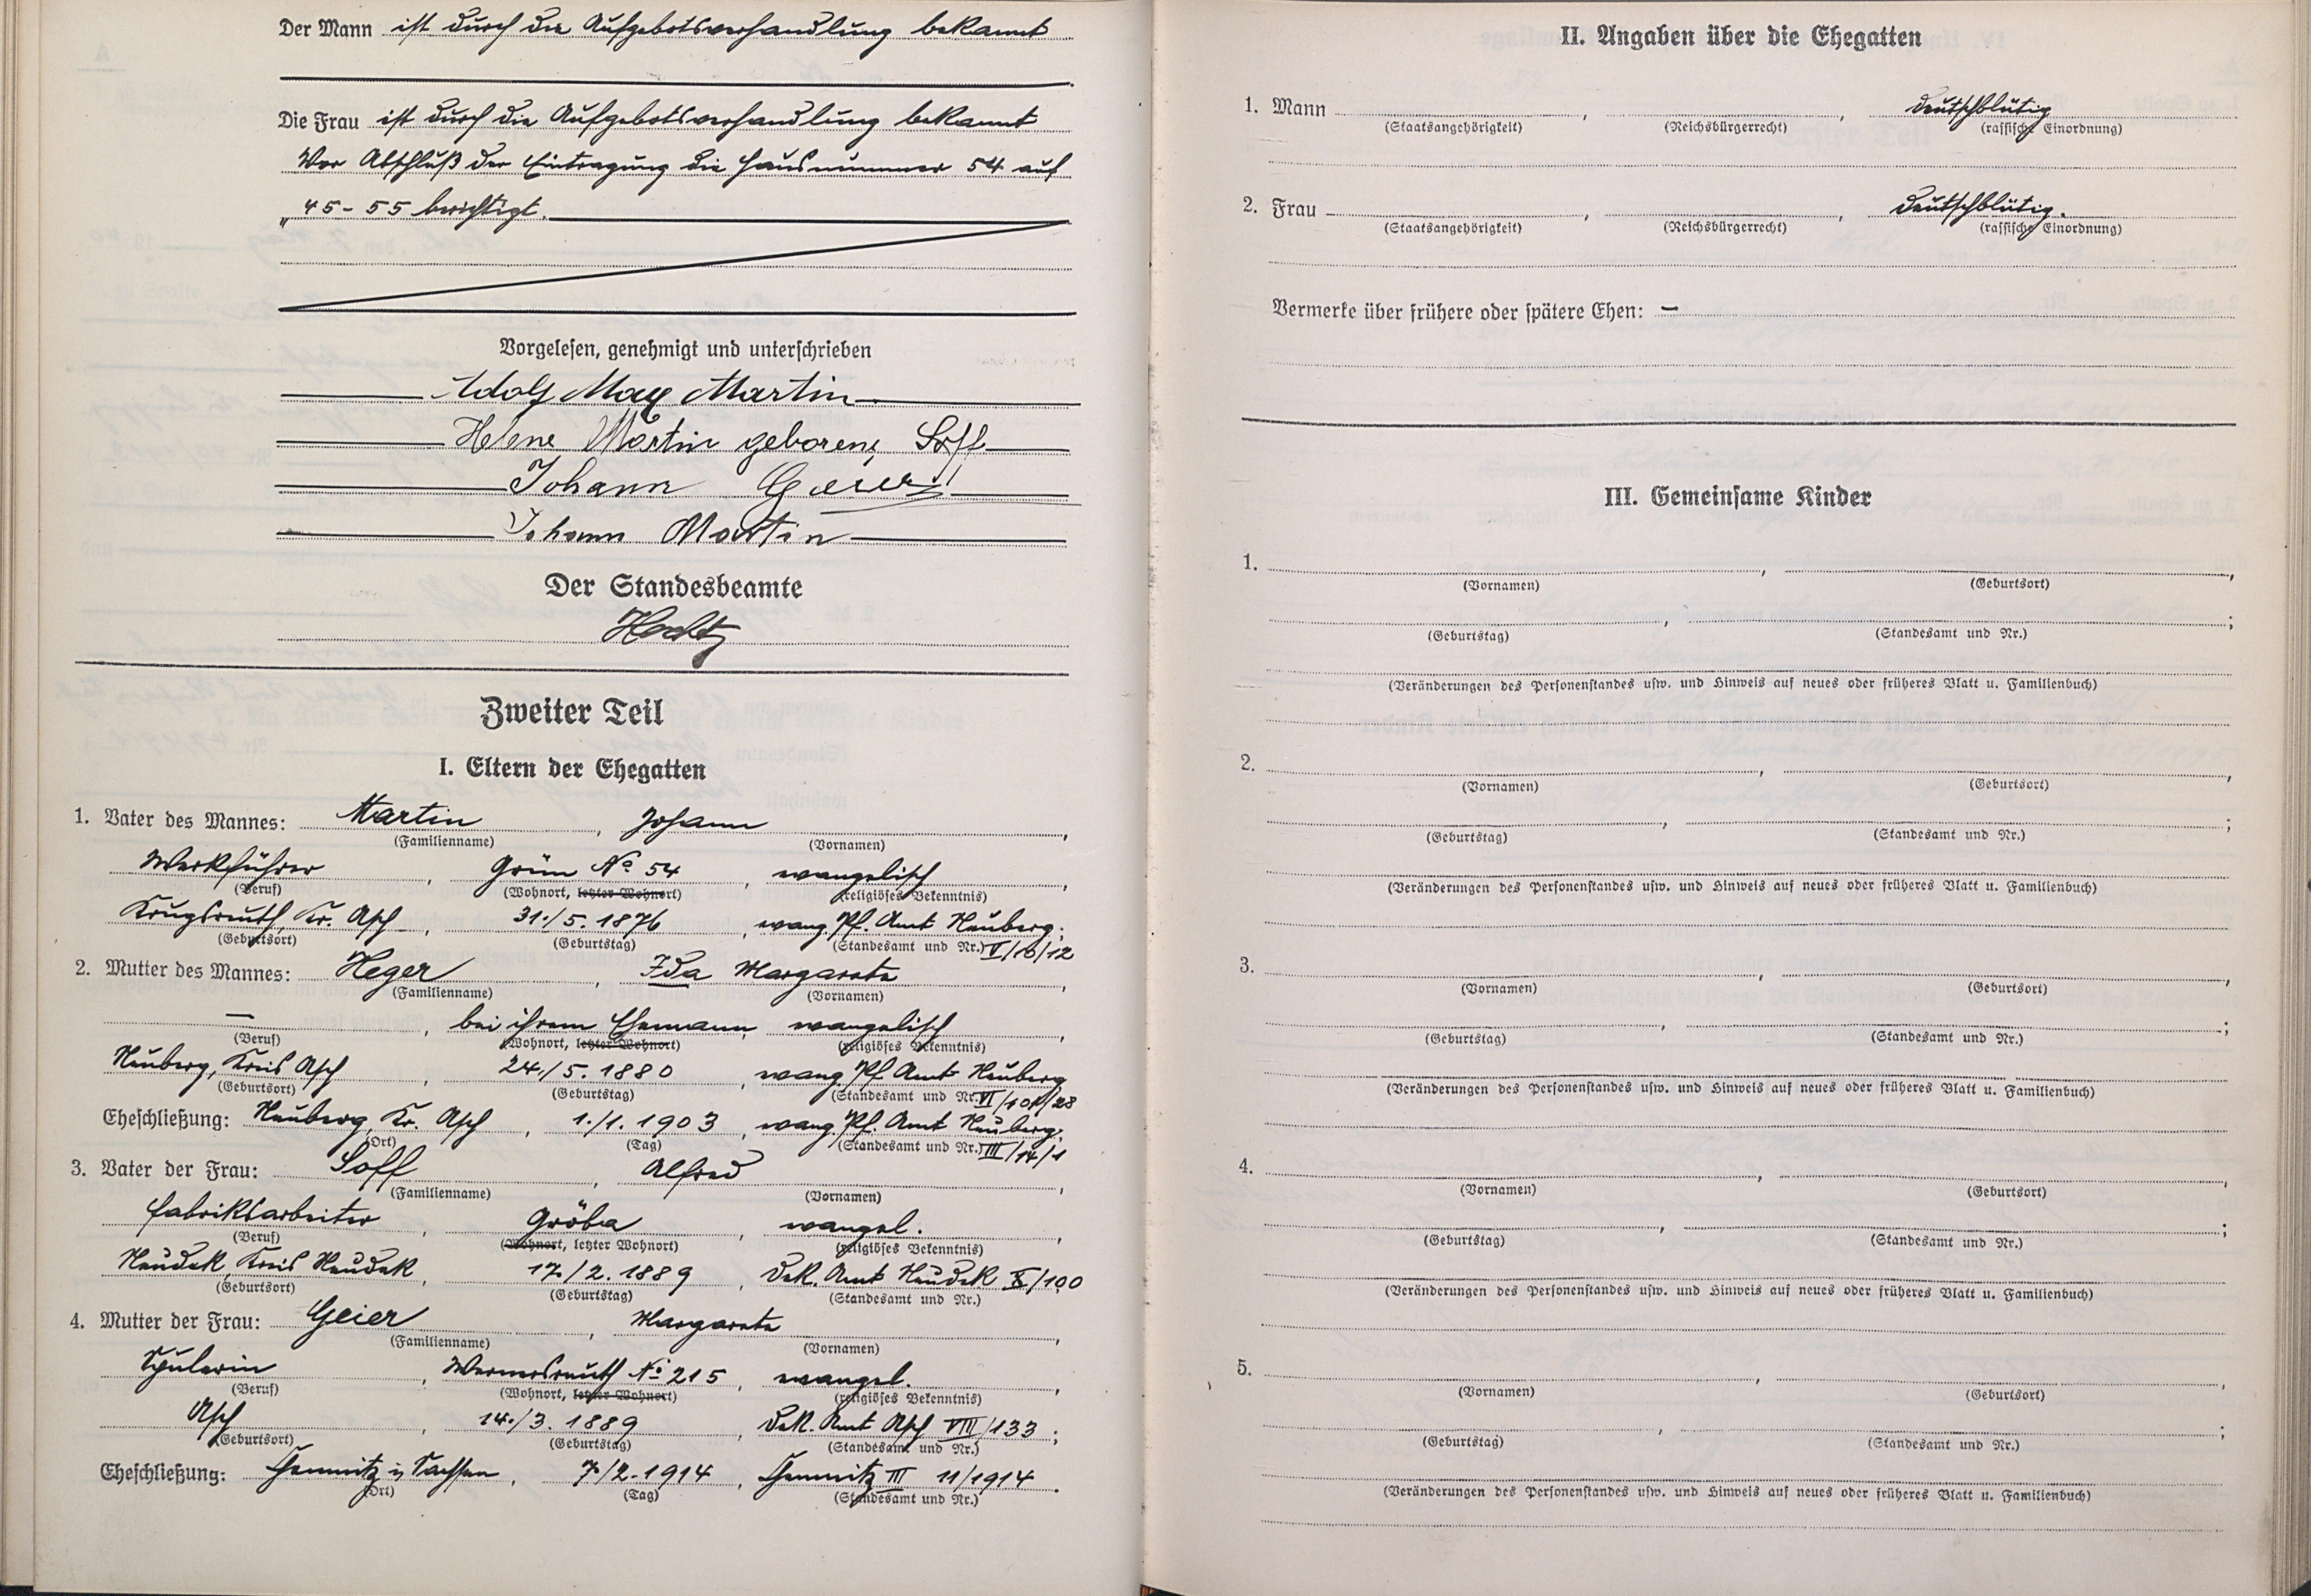 Der Mann ist durch die Aufgebotsverhandlung bekannt
Die Frau ist durch die Aufgebotsverhandlung bekannt
Vor Abschluß der Eintragung die Hausnummer 54 auf
„45-55 berichtigt.
Vorgelesen, genehmigt und unterschrieben
Adolf Max Martin
Helene Martin geborene Soff
Johann
Johann Martin
Der Standesbeamte
Zweiter Teil
I. Eltern der Ehegatten
1. Vater des Mannes: Martin, Johann,
(Familienname) (Vornamen)
Werkführer, Grün No 54, evangelisch,
(Beruf) (Wohnort, letzter Wohnort) (religiöses Bekenntnis)
Krugsreuth, Kr. Asch, 31./5. 1876, evang. Pf. Amt Neuberg;
(Geburtsort) (Geburtstag) (Standesamt und Nr.) V/16/12
2. Mutter des Mannes: Heger, Ida Margareta,
(Familienname) (Vornamen)
—, bei ihrem Ehemann, evangelisch,
(Beruf) (Wohnort, letzter Wohnort) (religiöses Bekenntnis)
Neuberg, Kreis Asch, 24./5. 1880, evang. Pf. Amt Neuberg
(Geburtsort) (Geburtstag) (Standesamt und Nr.) VI/101/28
Eheschließung: Neuberg, Kr. Asch, 1./1. 1903, evang. Pf. Amt Neuberg;
(Ort) (Tag) (Standesamt und Nr.) III/14/1
3. Vater der Frau: Soff, Alfred,
(Familienname) (Vornamen)
Fabriksarbeiter, Gröba, evangel.,
(Beruf) (Wohnort, letzter Wohnort) (religiöses Bekenntnis)
Neudek, Kreis Neudek, 17./2. 1889, Dek. Amt Neudek X/100
(Geburtsort) (Geburtstag) (Standesamt und Nr.)
4. Mutter der Frau: Geier, Margareta,
(Familienname) (Vornamen)
Spulerin, Wernersreuth No 215, evangel.,
(Beruf) (Wohnort, letzter Wohnort) (religiöses Bekenntnis)
Asch, 14./3. 1889, Dek. Amt Asch VIII/133;
(Geburtsort) (Geburtstag) (Standesamt und Nr.)
Eheschließung: Chemnitz i. Sachsen, 7./2. 1914, Chemnitz III 11/1914.
(Ort) (Tag) (Standesamt und Nr.)
II. Angaben über die Ehegatten
1. Mann , , deutschblütig
(Staatsangehörigkeit) (Reichsbürgerrecht) (rassische Einordnung)
2. Frau , , deutschblütig.
(Staatsangehörigkeit) (Reichsbürgerrecht) (rassische Einordnung)
Vermerke über frühere oder spätere Ehen: —
III. Gemeinsame Kinder
1. , ,
(Vornamen) (Geburtsort)
, ;
(Geburtstag) (Standesamt und Nr.)
(Veränderungen des Personenstandes usw. und Hinweis auf neues oder früheres Blatt u. Familienbuch)
2. , ,
(Vornamen) (Geburtsort)
, ;
(Geburtstag) (Standesamt und Nr.)
(Veränderungen des Personenstandes usw. und Hinweis auf neues oder früheres Blatt u. Familienbuch)
3. , ,
(Vornamen) (Geburtsort)
, ;
(Geburtstag) (Standesamt und Nr.)
(Veränderungen des Personenstandes usw. und Hinweis auf neues oder früheres Blatt u. Familienbuch)
4. , ,
(Vornamen) (Geburtsort)
, ;
(Geburtstag) (Standesamt und Nr.)
(Veränderungen des Personenstandes usw. und Hinweis auf neues oder früheres Blatt u. Familienbuch)
5. , ,
(Vornamen) (Geburtsort)
, ;
(Geburtstag) (Standesamt und Nr.)
(Veränderungen des Personenstandes usw. und Hinweis auf neues oder früheres Blatt u. Familienbuch)